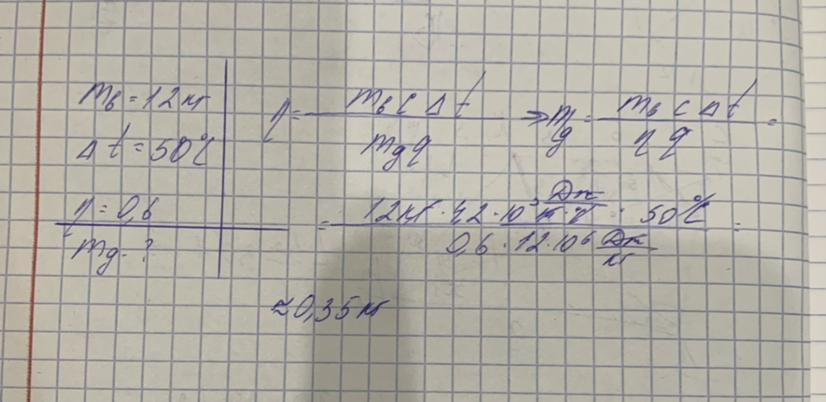 mв = 12 кг
Δt = 50°C
η = 0,6
mд - ?
η = mв c Δt / mд q => mд = mв c Δt / η q =
= 12 кг · 4,2 · 10³ Дж / кг · °C · 50°C / 0,6 · 12 · 10⁶ Дж / кг =
≈ 0,35 кг